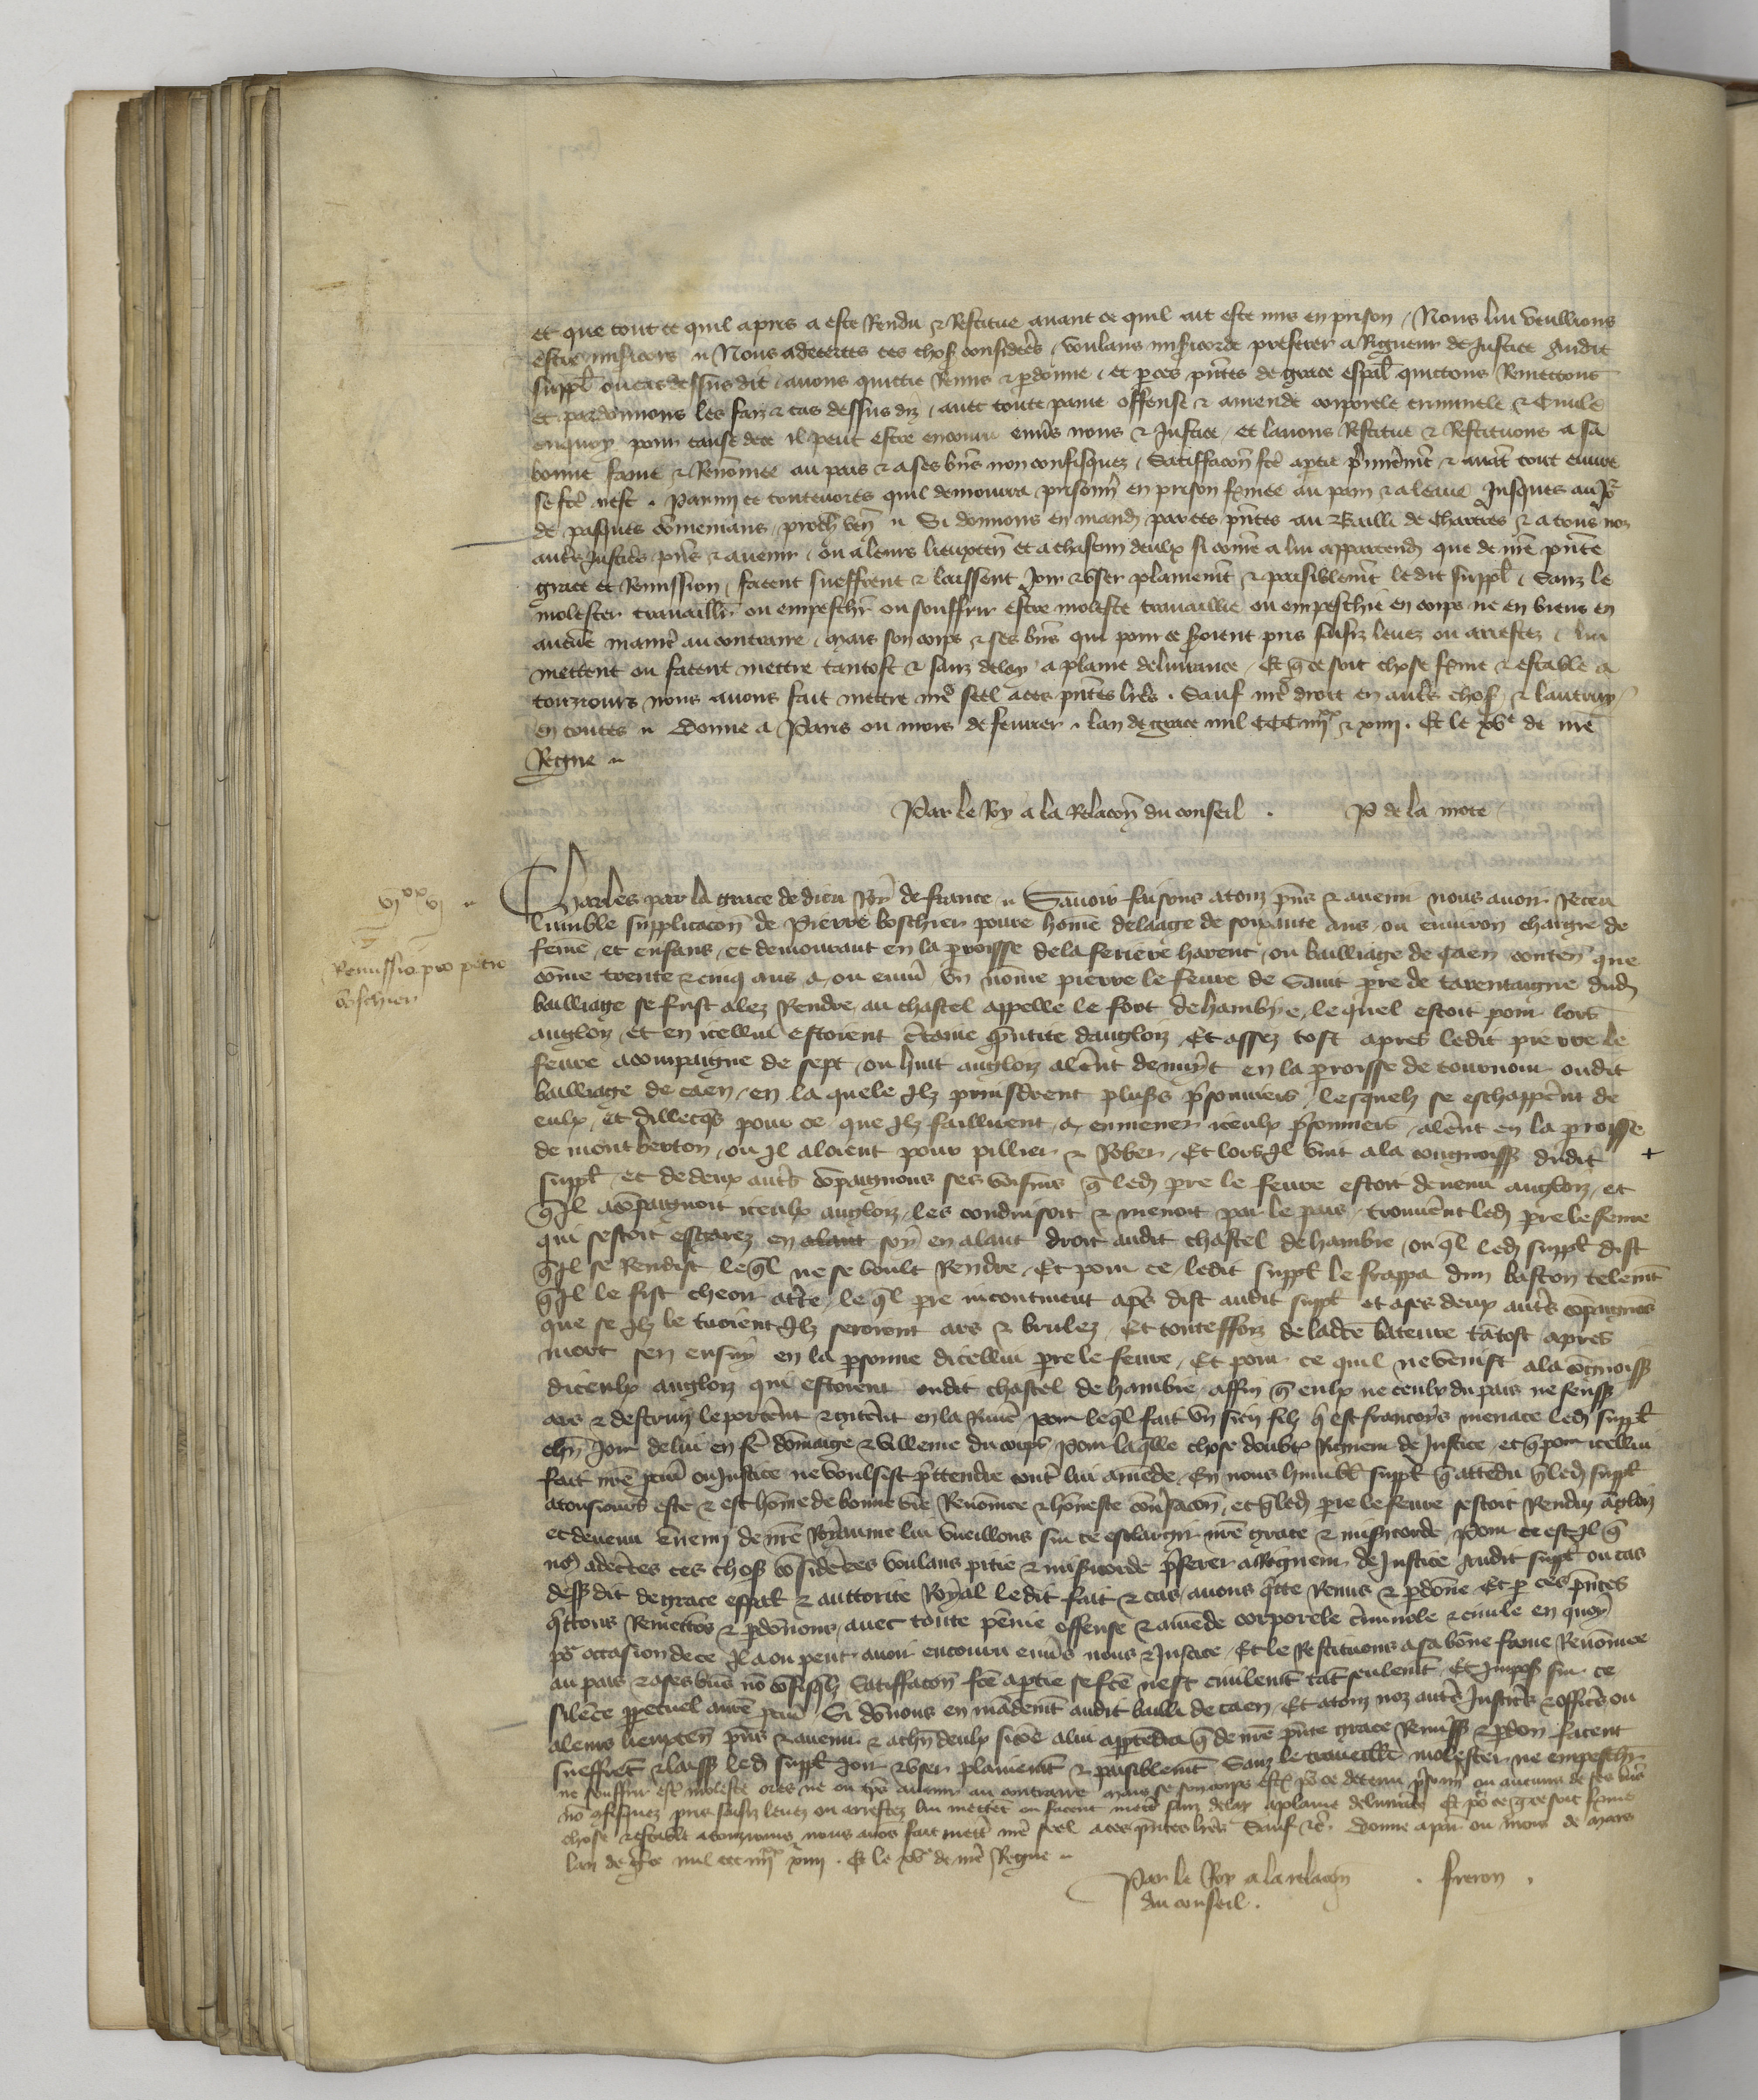 et que tout ce quil apres a este Rendu & Restitue auant ce quil ait este mis en prison / Nous lui veullions
estre misicors Nous adecertes ces chos considerees voulans misericorde preferer a Rigueur de Justice Audit
suppl ou cas dessus dit auons quittie Remis & pdonne et par ces pntes de grace espal quittons Remettons
et pardonnons les faiz & cas dessus diz auec toute paine offense & amende corporele criminele & Ciuile
enquoy pour cause de ce il peut estre encouru enuers nous & Justice et lauons Restitue & Restituons a sa
bonne fame & Renommee au pais & a ses bns non confisquez Satiffacon fce a ptie primierent & auat tout euure
se fce nest . Parmi ce touteuoies quil demourra prisonn en prison fermee au pain & aleaue Jusques au Jor
de pasques commenians proch ven Si donnons en mand par ces pntes au Bailli de Chartres & a tous noz
autres Justiciers pns & auenir ou a leurs lieuxten et a chascun deulx si come a lui appartendra que de nre pnte
grace et Remission facent sueffrent & laissent Joir & vser plainemt & paisiblemt ledit suppl Sanz le
molester trauaillier ou empeschier ou souffrir estre moleste trauaillie ou empeschie en corps ne en biens en
aucune maniere au contraire mais son corps & ses bns qui pour ce seroient pris saisiz leuez ou arrestez lui
mettent ou facent mettre tantost & sanz delay a plaine deliurance Et q ce soit chose ferme & estable a
touzjours nous auons fait mettre nre seel a ces pntes lres . Sauf nre droit en autres chos & lautruy
en toutes Donne a Paris ou mois de feurier . lan de grace mil CCC iiiixx & xiiii . Et le xve de nre
Regne
Par le Roy a la Relacon du conseil . P de la mote
vixx vi
Remissio pro petro
boschier
Charles par la grace de dieu Roy de france Sauoir faisons a touz pns & auenir nous auoir Receu
lumble supplicacon de Pierre boschier poure home de laage de soixante ans ou enuiron chargie de
feme et enfans et demourant en la proisse de la feriere harent ou bailliage de Caen conten que
come trente & cinq ans a ou enuir vn nome pierre le feure de Saint pre de tarentaigne dud
bailliage se feust alez Rendre au chastel appelle le fort de hambie lequel estoit pour lors
angloiz et en icellui estoient certaine quntite dangloiz Et assez tost apres ledit pierre le
feure acompaigne de sept ou huit angloiz alerent de nuyt en la proisse de tournoir oudit
bailliage de caen en la quele Ilz prinsdrent pluss prisonniers lesquelz se eschapperent de
eulx Et dillecqs pour ce que Ilz faillirent a enmener iceulx prisonniers alerent en la proisse
de mont berton ou Il aloient pour pillier & Rober Et lors Il vint a la congnoiss dudit +
suppl et de deux autres compaignons ses voisins q led pre le feure estoit deuenu angloiz et
q Il acompaignoit iceulx angloiz les conduisoit & menoit par le pais trouuerent led pre le feure
qui sestoit esgarez en alant soy en alant droit audit chastel de hambie ou ql led suppl dist
q Il se Rendist leql ne se voult Rendre Et pour ce ledit suppl le frappa dun baston telemt
q Il le fist cheoir a terre le ql pre incontinent aps dist audit suppl et a ses deux autres compaignos
que se Ilz le tuoient Ilz seroient ars & brulez Et touteffoiz de ladce bateure tatost apres
mort sen ensuy en la psonne dicellui pre le feure Et pour ce quil ne venist a la congnoiss
diceulx angloiz qui estoient oudit chastel de hambie affin q eulx ne ceulx du pais ne feuss
ars & destruiz le porterent & gitterent en la Riuiere pour leql fait vn sien filz q est francoys menace led suppl
chun Jour de lui en fe domaige & villenie du corps Pour laqlle chose doubte Rigueur de Justice et q pour icellui
fait nre pcur ou Justice ne voulsist pretendre contre lui amede En nous humbl suppl q attendu q led suppl
a tousiours este & est home de bonne vie Renomee & honeste conuersacon et q led pre le feure sestoit Rendu agloiz
et deuenu ennemi de nre Royaume lui vueillons sur ce eslargir nre grace & misericorde Pour ce est Il q
no adecertes ces chos considerees voulans pitie & misericorde preferer a Rigueur de Justice Audit suppl ou cas
dess dit de grace espal & auttorite Royal ledit fait & cas auons qtte Remis & pdone Et p ces pntes
qttons Remettos & pdonnons auec toute peinie offense & amede corporele criminele & ciuile en quoy
po occasion de ce Il a ou peut auoir encouru enuers nous & Justice Et le Restituons a sa bone fame Renomee
au pais & a ses biens no cofisqz Satiffacon fce a ptie se fce nest ciuilemt tat seulemt Et Impos sur ce
silece ppetuel a nre pcur Si donnons en mademt audit bailli de caen Et a touz noz autres Justiciers & officiers ou
a leurs lieuxten pns & auenir & a chun deulx sicoe a lui apptedra q de nre pnte grace Remiss & pdon facent
sueffret & laiss led suppl Joir & vser plainemt & paisiblemt Sanz le trauaillier molester ne empeschier
ne souffrir est moleste ores ne ou tps auenir au contraire mais se son corps est po ce detenu prisonn ou aucuns de ses bns
no cofisquez pris saisiz leuez ou arrestez lui mettet ou facent mett sanz delay a plaine deliurace Et po ce q ce soit ferme
chose & estable a touzjours nous auos fait mett nre seel a ces pntes lres Sauf &c . Donne a par ou mois de mars
lan de gce mil ccc iiiixx xiiii . Et le xve de nre Regne
Par le Roy a la relacon . freron .
du conseil .